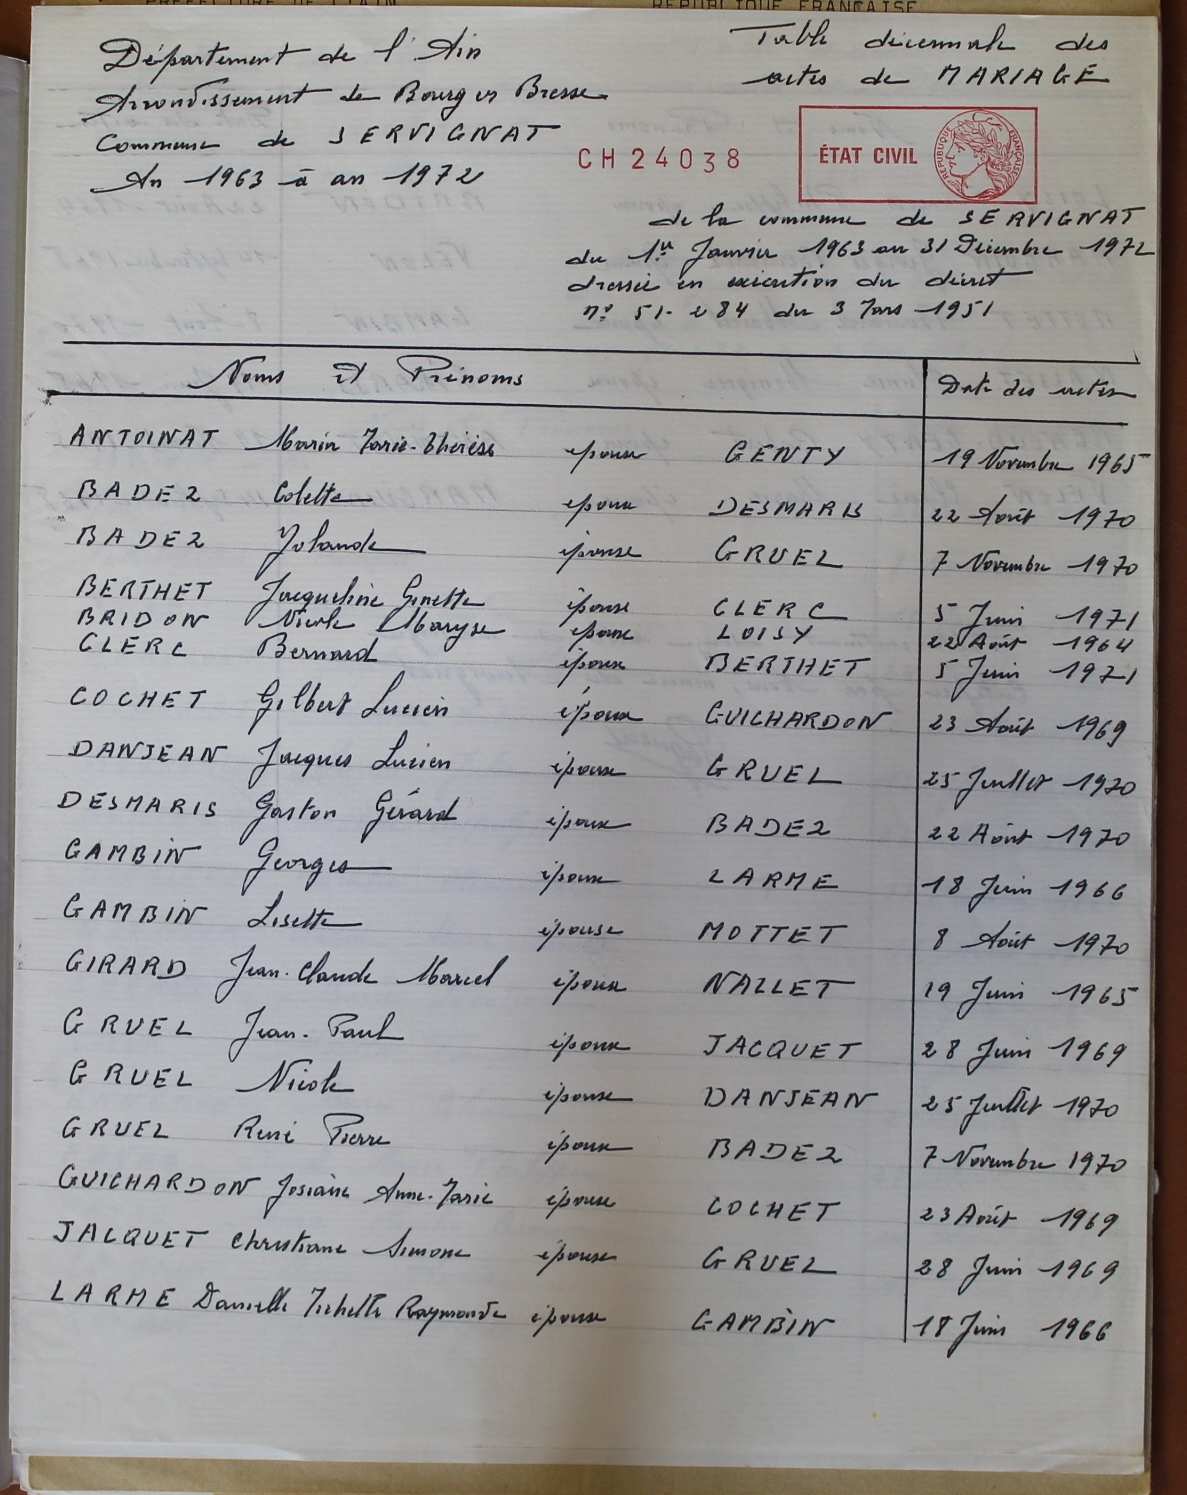 RÉPUBLIQUE FRANÇAISE
Département de l'Ain
Table décennale des
actes de MARIAGE
Arrondissement de Bourg en Bresse
Commune de SERVIGNAT
An 1963 à an 1972
CH24038
ÉTAT CIVIL
RÉPUBLIQUE FRANÇAISE
de la commune de SERVIGNAT
du 1er Janvier 1963 au 31 Décembre 1972
dressée en exécution du décret
n° 51-284 du 3 Mars 1951
Noms et Prénoms Date des actes
ANTOINAT Marie Marie-Thérèse épouse GENTY 19 Novembre 1965
BADEZ Colette épouse DESMARIS 22 Août 1970
BADEZ Yolande épouse GRUEL 7 Novembre 1970
BERTHET Jacqueline Ginette épouse CLERC 5 Juin 1971
BRIDON Nicole Maryse épouse LOISY 22 Août 1964
CLERC Bernard époux BERTHET 5 Juin 1971
COCHET Gilbert Lucien époux GUICHARDON 23 Août 1969
DANJEAN Jacques Lucien époux GRUEL 25 Juillet 1970
DESMARIS Gaston Gérard époux BADEZ 22 Août 1970
GAMBIN Georges époux LARME 18 Juin 1966
GAMBIN Lisette épouse MOTTET 8 Août 1970
GIRARD Jean-Claude Marcel époux NALLET 19 Juin 1965
GRUEL Jean-Paul époux JACQUET 28 Juin 1969
GRUEL Nicole épouse DANJEAN 25 Juillet 1970
GRUEL René Pierre époux BADEZ 7 Novembre 1970
GUICHARDON Josiane Anne-Marie épouse COCHET 23 Août 1969
JACQUET Christiane Simone épouse GRUEL 28 Juin 1969
LARME Danielle Michelle Raymonde épouse GAMBIN 18 Juin 1966